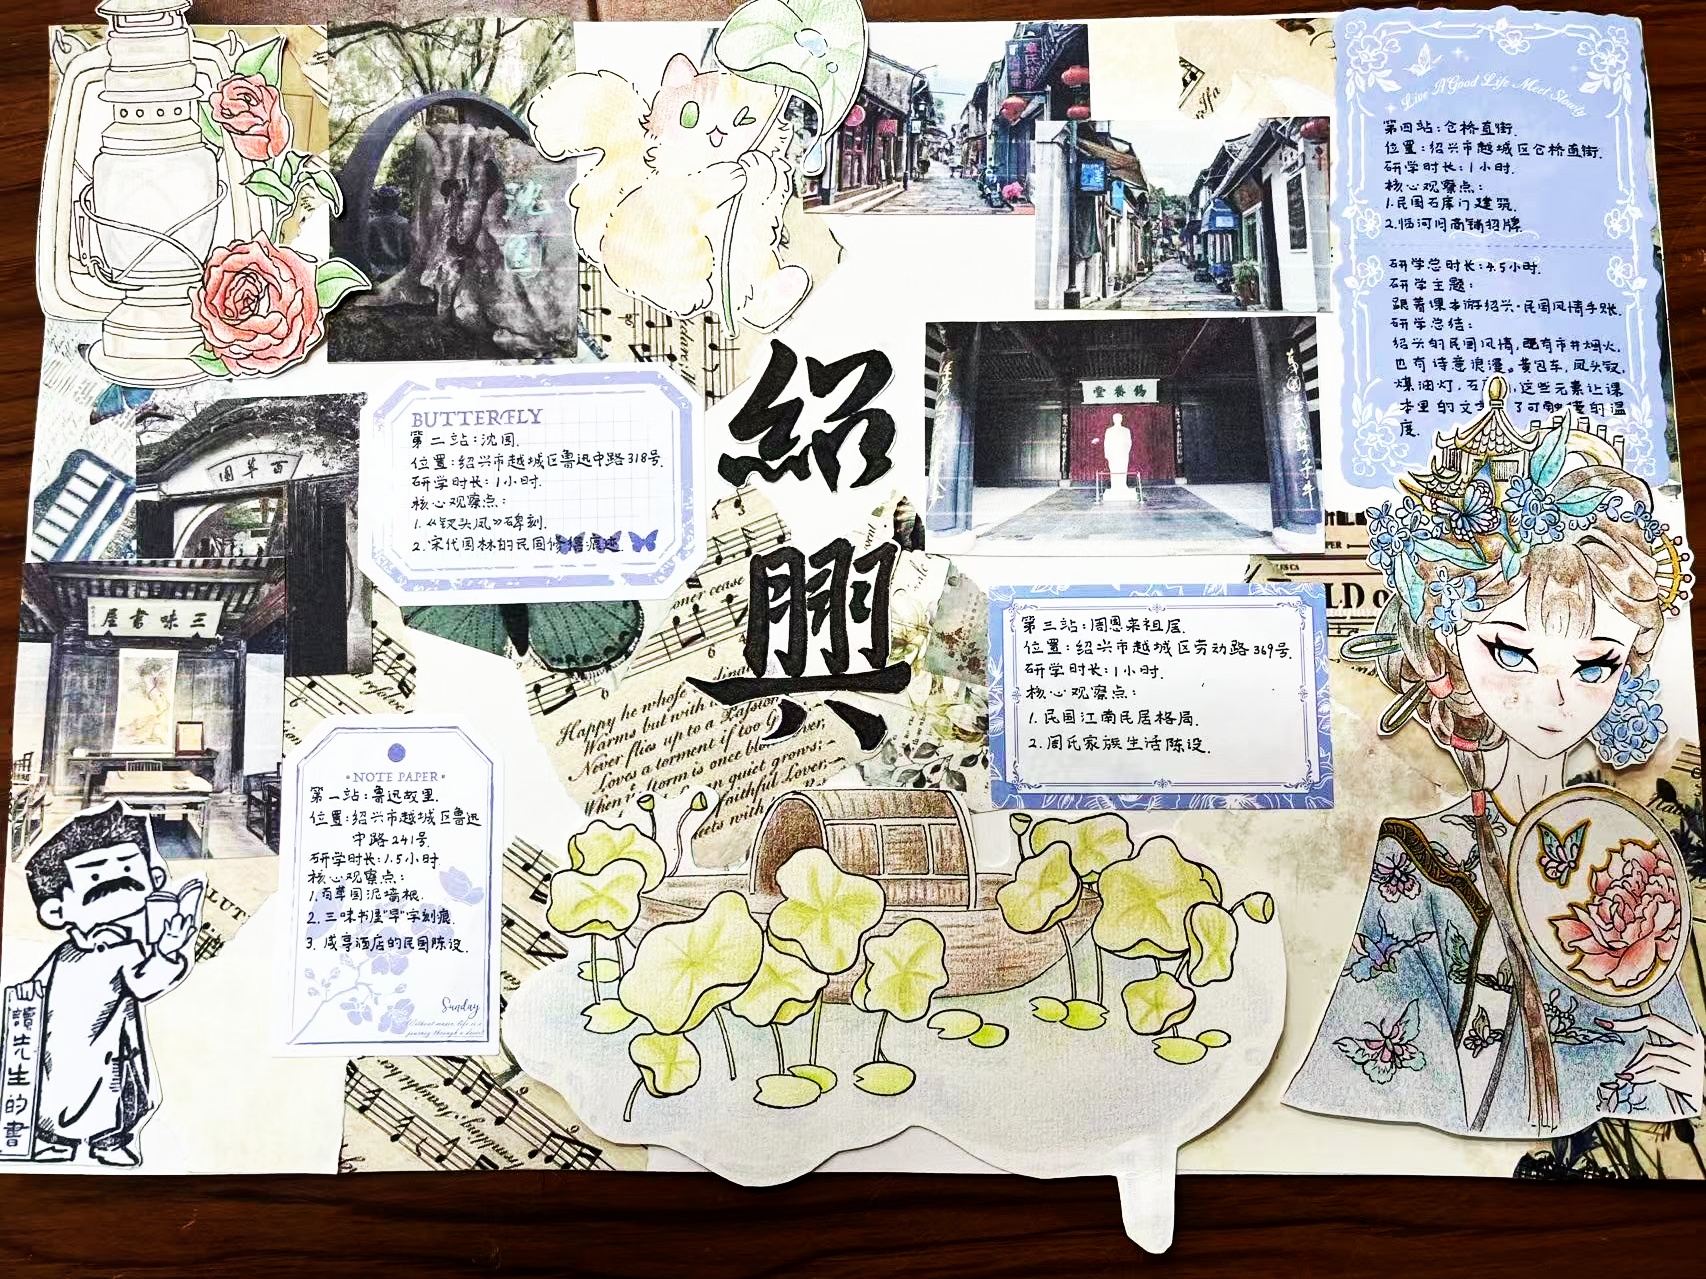 绍
興
沈園
園草百
屋書味三
堂養錫
讀先生的書
NOTE PAPER
第一站:鲁迅故里.
位置:绍兴市越城区鲁迅
中路241号
研学时长:1.5小时
核心观察点:
1.百草园泥墙根.
2.三味书屋“早”字刻痕.
3.咸亨酒店的民国陈设.
Sunday
BUTTERFLY
第二站:沈园.
位置:绍兴市越城区鲁迅中路318号.
研学时长:1小时.
核心观察点:
1.《钗头凤》碑刻.
2.宋代园林的民国修缮痕迹.
第三站:周恩来祖居.
位置:绍兴市越城区劳动路369号.
研学时长:1小时.
核心观察点:
1.民国江南民居格局.
2.周氏家族生活陈设.
Live A Good Life Meet Slowly
第四站:仓桥直街.
位置:绍兴市越城区仓桥直街.
研学时长:1小时.
核心观察点:
1.民国石库门建筑.
2.临河问商铺招牌
研学总时长:4.5小时.
研学主题:
跟着课本游绍兴·民国风情手账.
研学总结:
绍兴的民国风情,既有市井烟火,
也有诗意浪漫。黄包车,凤头钗,
煤油灯,石,这些元素让课
本里的文了可触摸的温
度.
oner cease
Happy he whose
Warms but with
Never flies up to a Passion
Loves a torment if too
Storm is once
quiet grows;
faithful Lover